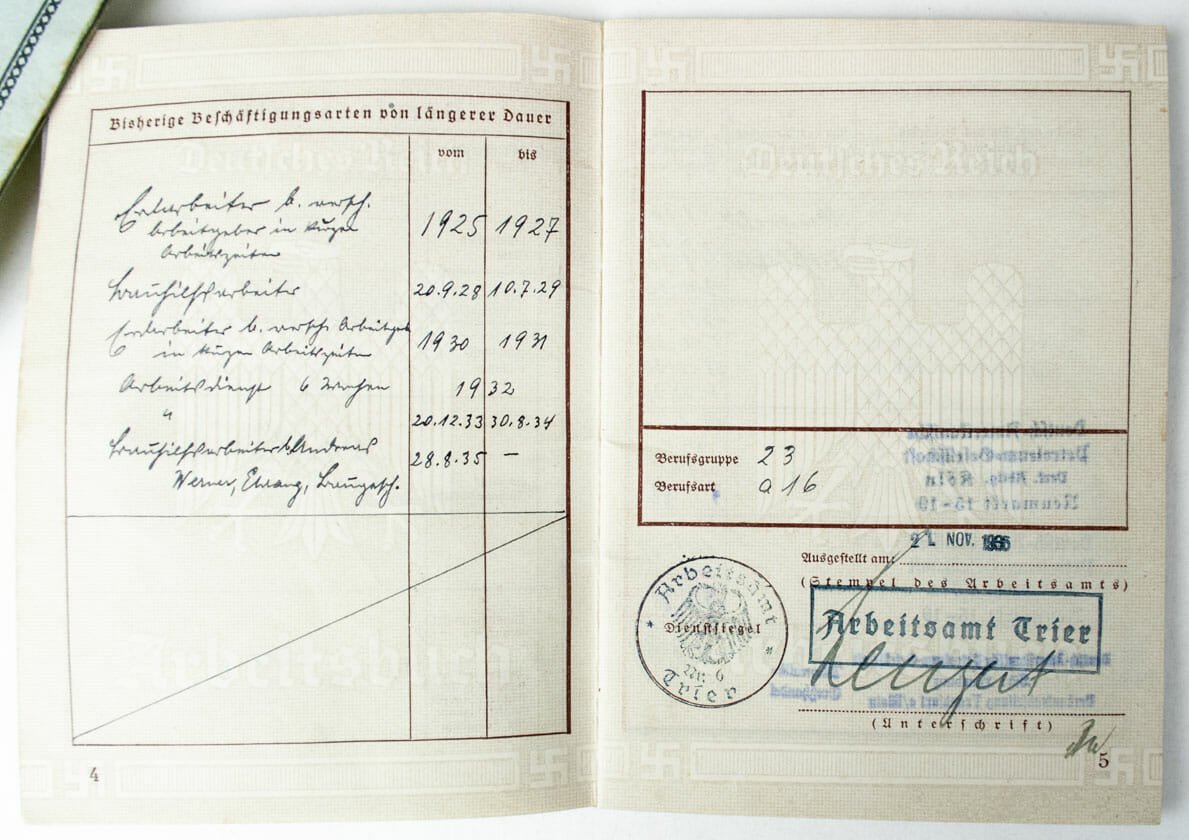 Bisherige Beschäftigungsarten von längerer Dauer
vom bis
Erdarbeiter b. versch.
Arbeitgeber in kurzen 1925 1927
Arbeitszeiten
Bauhilfsarbeiter 20.9.28 10.7.29
Erdarbeiter b. versch. Arbeitgeb.
in kurzen Arbeitszeiten 1930 1931
Arbeitsdienst 6 Wochen 1932
" 20.12.33 30.8.34
Bauhilfsarbeiter b. Andreas 28.8.35 –
Werner, Ehrang, Baugesch.
4
Deutsches Reich
Deutsches Reich
Berufsgruppe 23
Berufsart a 16
Köln
Neumarkt 15-19
Ausgestellt am: 21. NOV. 1935
(Stempel des Arbeitsamts)
Arbeitsamt
Dienstsiegel
Nr. 6
Trier
Arbeitsamt Trier
(Unterschrift)
5